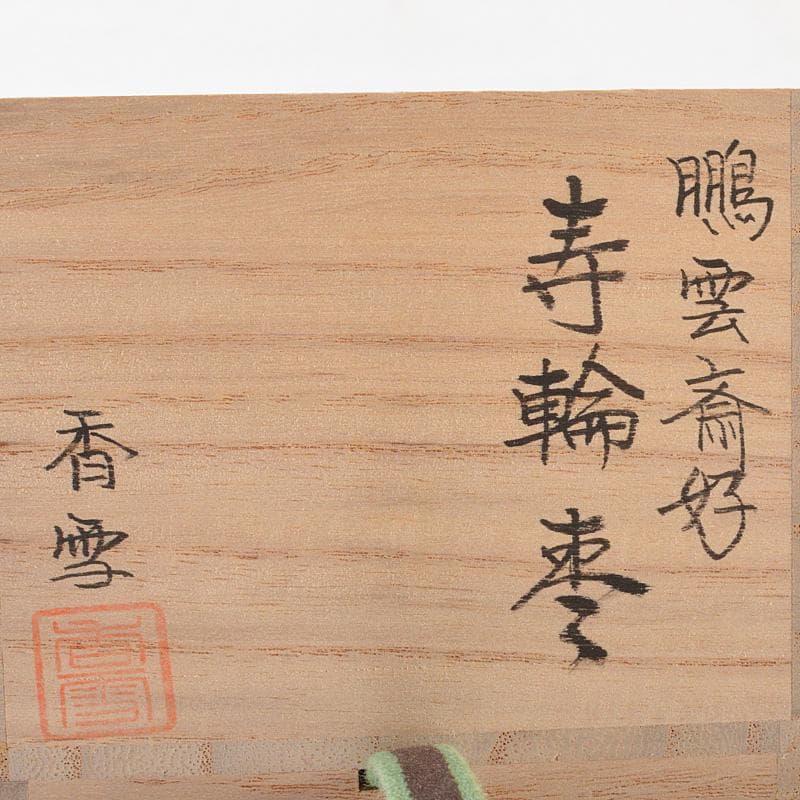 鵬雲斎好
寿輪棗
香雪